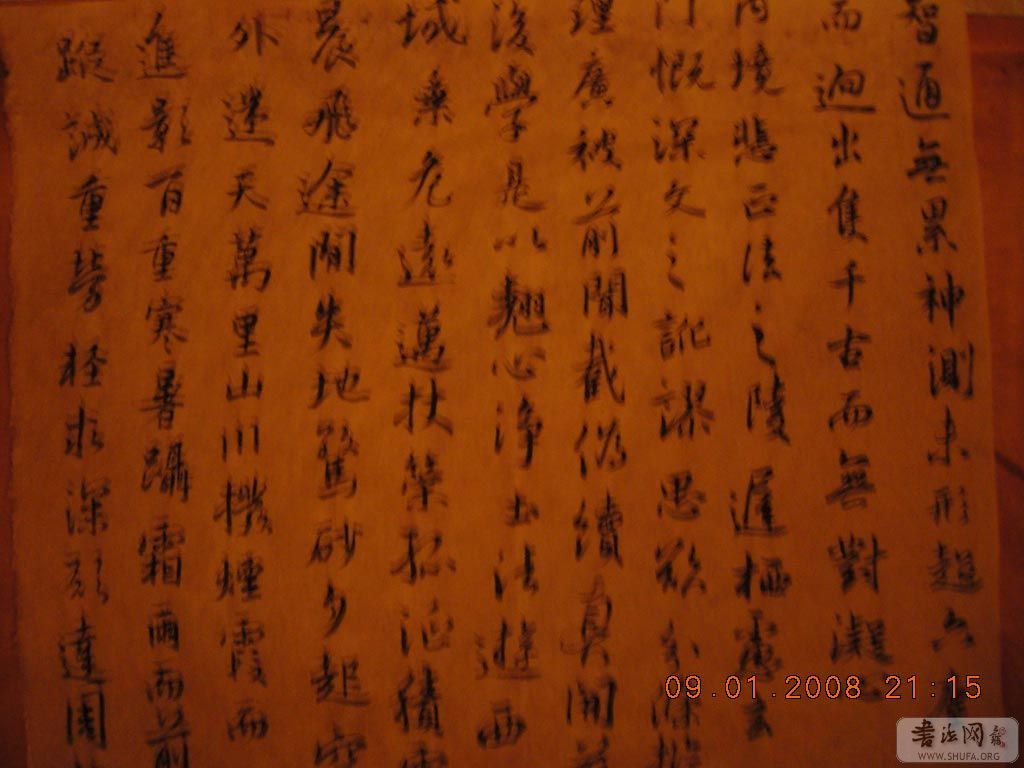 智通無累神測未形超六塵
而迥出隻千古而無對凝
內境悲正法之陵遲栖慮玄
門慨深文之訛謬思欲分條
理廣被前聞截偽續真開
後學是以翹心淨土法遊西
域乘危遠邁杖策孤征積雪
晨飛途閒失地驚砂夕起空
外迷天萬里山川撥煙霞而
進影百重寒暑躡霜雨而前
蹤誠重勞輕求深願達周
09.01.2008 21:15
书法网
WWW.SHUFA.ORG